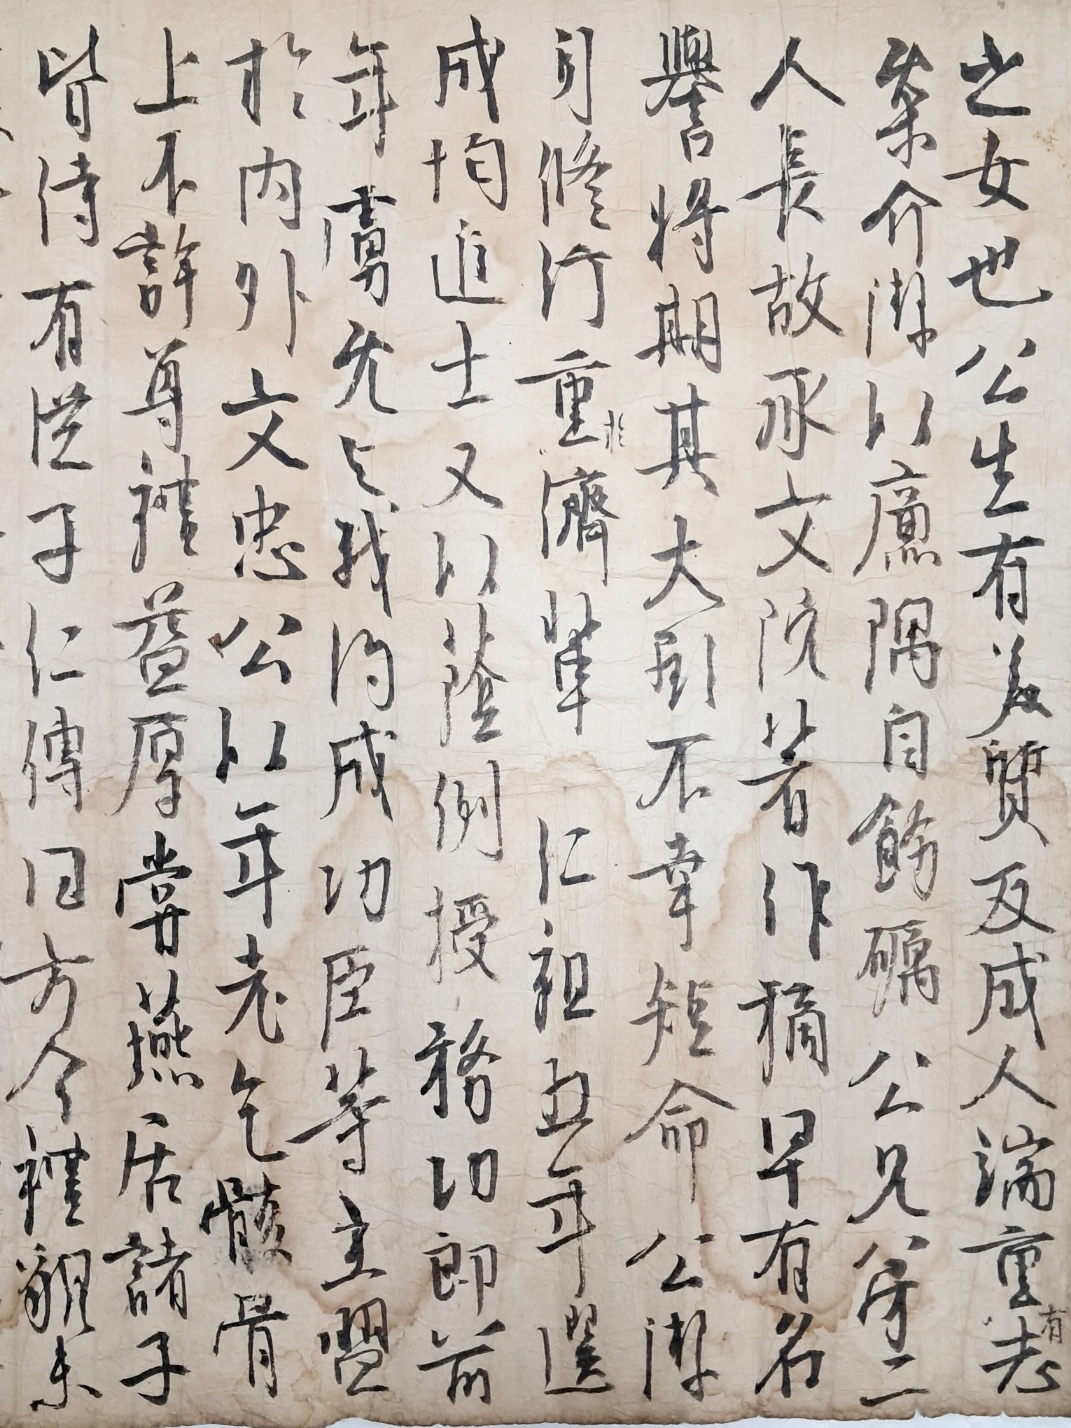 之女也公生有美質及成人端重有志
業介潔以廉隅自飭礪公兄弟二
人長故承文院著作穧早有名
譽將期其大到不幸短命公潔
身修行重於儕輩仁祖五年選
成均進士又以蔭例授務功郎前
年虜允之我約成功臣等主盟
於內外文忠公以年老乞骸骨
上不許尊禮益厚嘗燕居諸子
皆侍有從子仁傳曰方今禮貌未